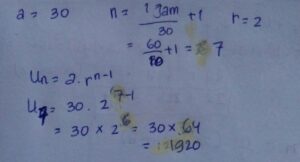 a = 30 n = 1 Jam / 30 + 1 r = 2
= 60/10 + 1 = 7
Un = 2. rⁿ⁻¹
U7 = 30 . 2⁷⁻¹
= 30 × 2⁶ = 30 × 64
= 1920